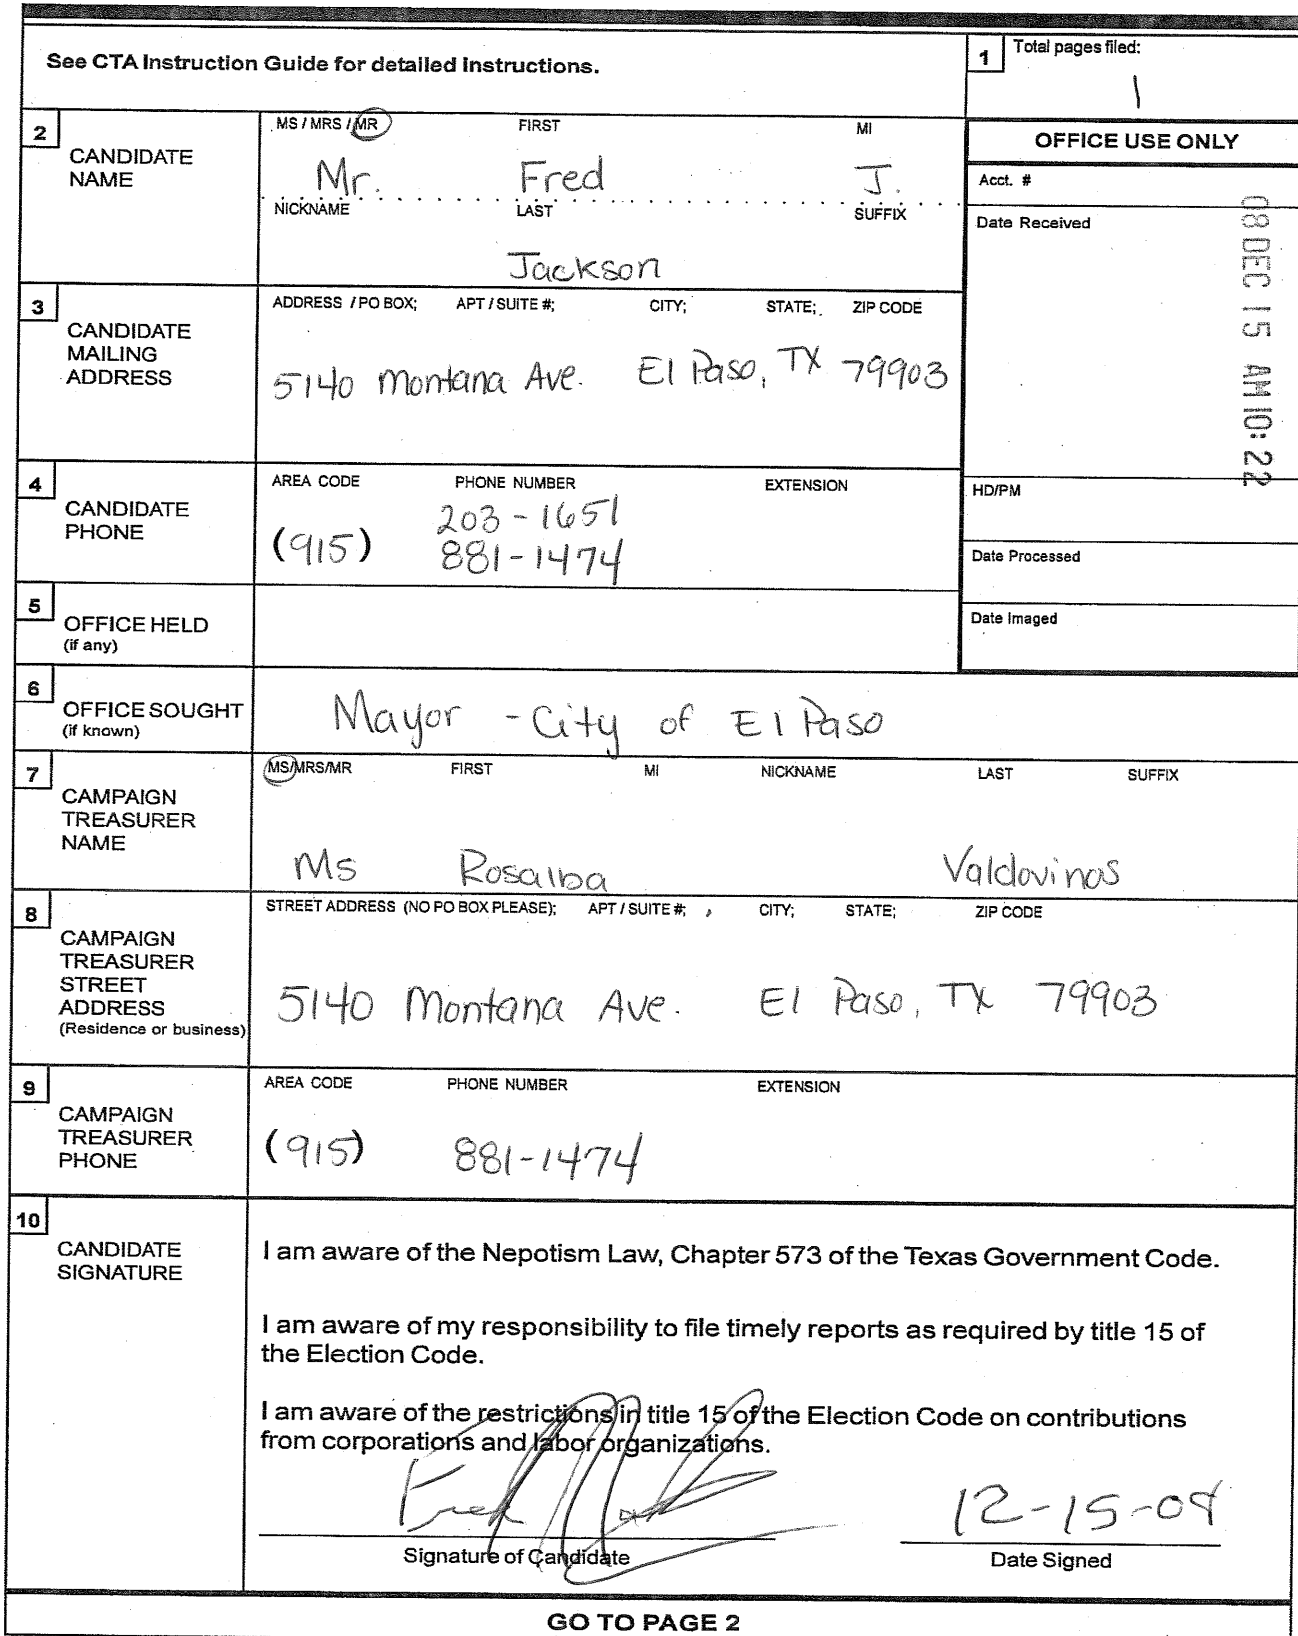 See CTA Instruction Guide for detailed instructions.
1 Total pages filed:
1
2 CANDIDATE NAME
MS / MRS / MR FIRST MI
Mr. Fred J.
NICKNAME LAST SUFFIX
Jackson
OFFICE USE ONLY
Acct. #
Date Received
08 DEC 15 AM 10: 22
HD/PM
Date Processed
Date Imaged
3 CANDIDATE MAILING ADDRESS
ADDRESS / PO BOX; APT / SUITE #; CITY; STATE; ZIP CODE
5140 Montana Ave. El Paso, TX 79903
4 CANDIDATE PHONE
AREA CODE PHONE NUMBER EXTENSION
203-1651
(915) 881-1474
5 OFFICE HELD
(if any)
6 OFFICE SOUGHT
(if known)
Mayor - City of El Paso
7 CAMPAIGN TREASURER NAME
MS/MRS/MR FIRST MI NICKNAME LAST SUFFIX
Ms Rosalba Valdovinos
8 CAMPAIGN TREASURER STREET ADDRESS
(Residence or business)
STREET ADDRESS (NO PO BOX PLEASE); APT / SUITE #; CITY; STATE; ZIP CODE
5140 Montana Ave. El Paso, TX 79903
9 CAMPAIGN TREASURER PHONE
AREA CODE PHONE NUMBER EXTENSION
(915) 881-1474
10 CANDIDATE SIGNATURE
I am aware of the Nepotism Law, Chapter 573 of the Texas Government Code.
I am aware of my responsibility to file timely reports as required by title 15 of
the Election Code.
I am aware of the restrictions in title 15 of the Election Code on contributions
from corporations and labor organizations.
Fred 12-15-08
Signature of Candidate Date Signed
GO TO PAGE 2